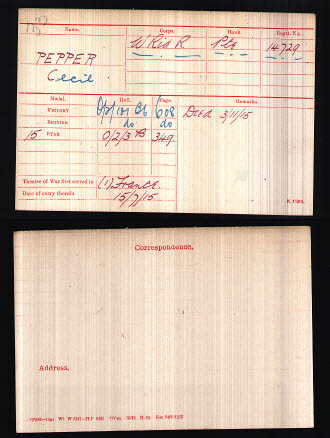 Name. Corps. Rank Regtl. No.
PEPPER W Rid R Pte 14729
Cecil
Medal. Roll. Page. Remarks.
VICTORY 608 Dead 3/11/15
BRITISH do do
15 STAR 0/2/3 B 349
Theatre of War first served in (1) France.
Date of entry therein 15/7/15
K. 1380.
Correspondence.
Address.